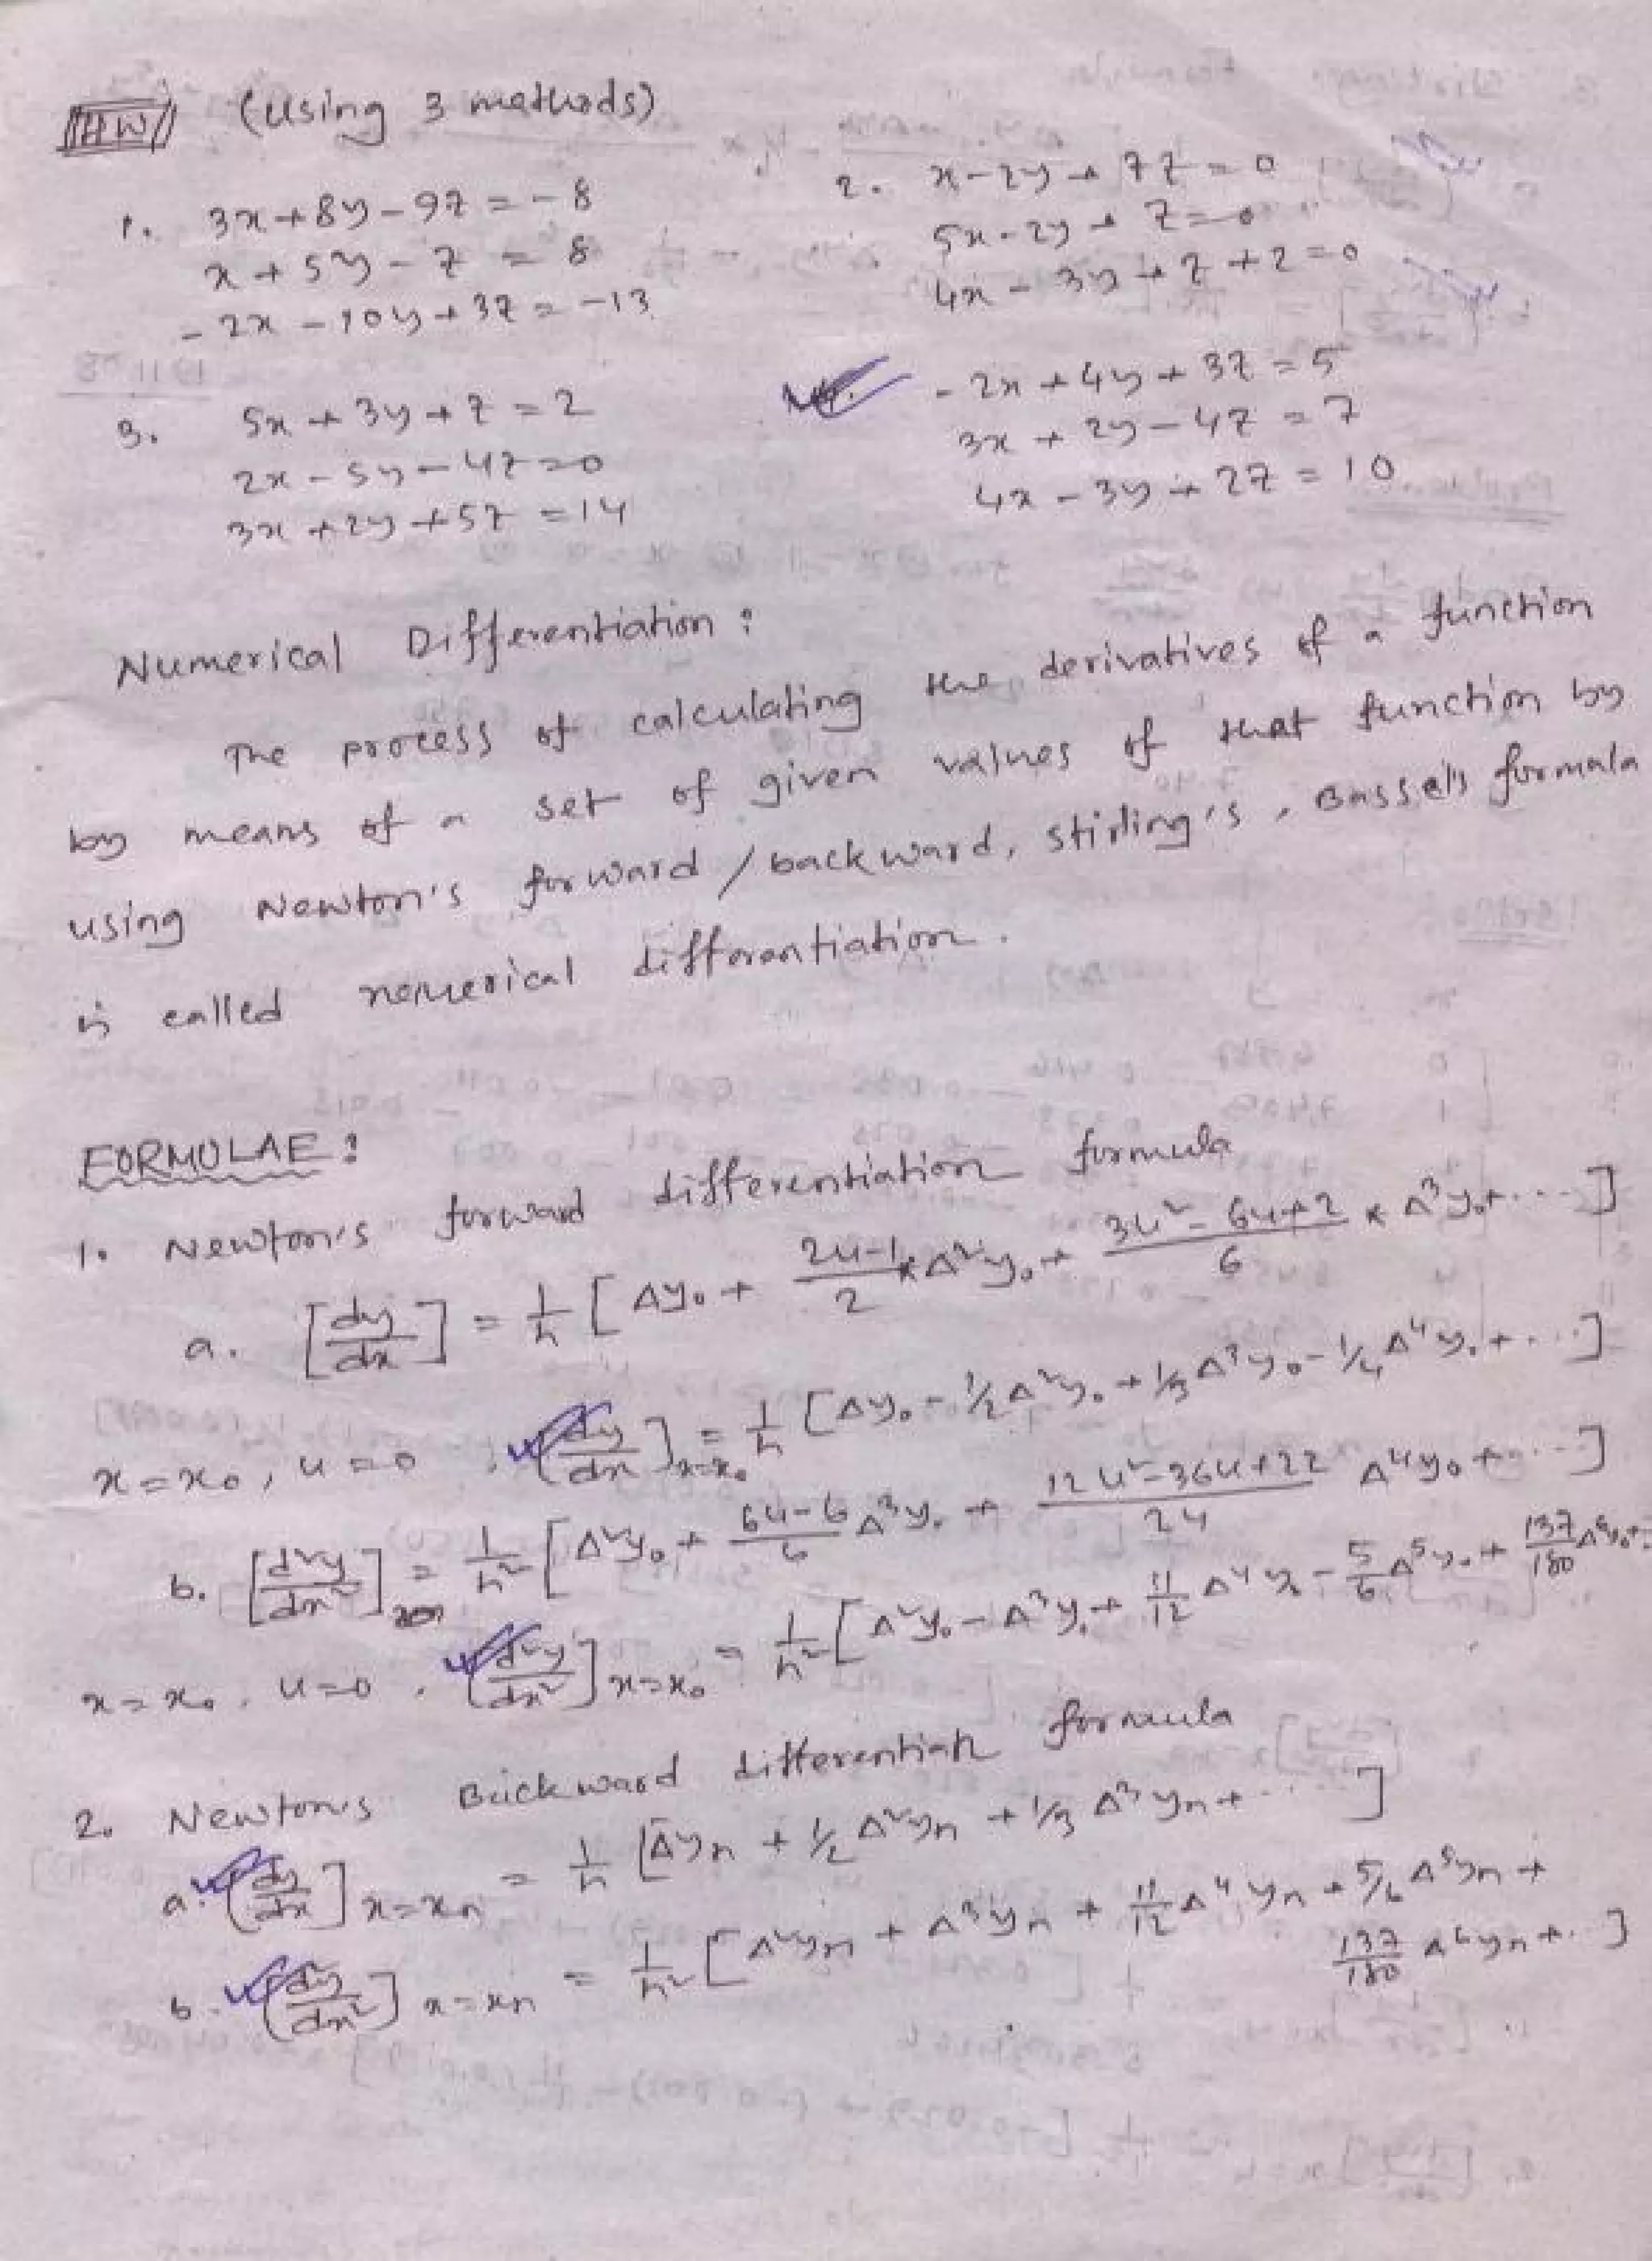 HW (using 3 methods)
1. 3x+8y-9z=-8
x+5y-z=8
-2x-10y+3z=-13
2. x-2y+7z=0
5x-2y+z=0
4x-3y+z+2=0
3. 5x+3y+z=2
2x-5y-4z=0
3x+2y+5z=14
4. -2x+4y+3z=5
3x+2y-4z=7
4x-3y+2z=10
Numerical Differentiation:
The process of calculating the derivatives of a function
by means of a set of given values of that function by
using Newton's forward/backward, stirling's, Bassel's formula
is called numerical differentiation.
FORMULAE:
1. Newton's forward differentiation formula
a. [dy/dx] = 1/h [Δy₀ + (2u-1)/2 × Δ²y₀ + (3u²-6u+2)/6 × Δ³y₀+....]
x=x₀, u=0, [dy/dx]x=x₀ = 1/h [Δy₀ - 1/2 Δ²y₀ + 1/3 Δ³y₀ - 1/4 Δ⁴y₀+...]
b. [d²y/dx²] = 1/h² [Δ²y₀ + (6u-6)/6 Δ³y₀ + (12u²-36u+22)/24 Δ⁴y₀+....]
x=x₀, u=0, [d²y/dx²]x=x₀ = 1/h² [Δ²y₀ - Δ³y₀ + 11/12 Δ⁴y₀ - 5/6 Δ⁵y₀ + 137/180 Δ⁶y₀+..
2. Newton's Backward differentiatn formula
a. [dy/dx]x=xn = 1/h [Δyn + 1/2 Δ²yn + 1/3 Δ³yn+....]
b. [d²y/dx²]x=xn = 1/h² [Δ²yn + Δ³yn + 11/12 Δ⁴yn + 5/6 Δ⁵yn +
137/180 Δ⁶yn+..]